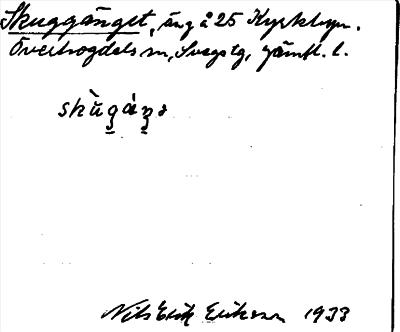 Skuggänget, äng å 25 Kyrkbyn.
Överhogdals sn, Svegs tg, Jämtl. l.
skùgáŋə
Nils Erik Eriksson 1933